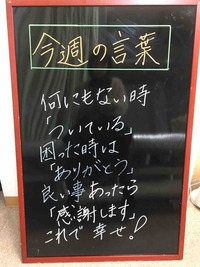 今週の言葉
何にもない時
「ついている」
困った時は
「ありがとう」
良い事あったら
「感謝します」
これで幸せ!